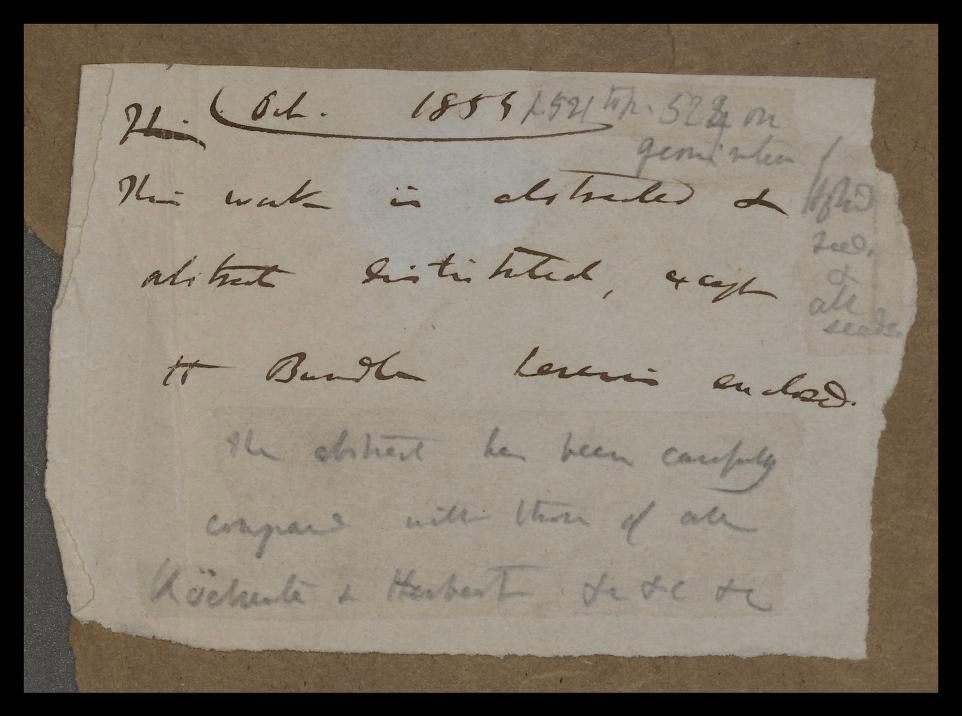 This (Oct. 1855 p. 521 to p. 524 on
germination
This work is abstracted &
abstract distributed, except
the Bundle herein enclosed.
of
seed.
&
all
seeds.
The abstract has been carefully
compared with those of all
Kölreuter & Herbert &c &c &c